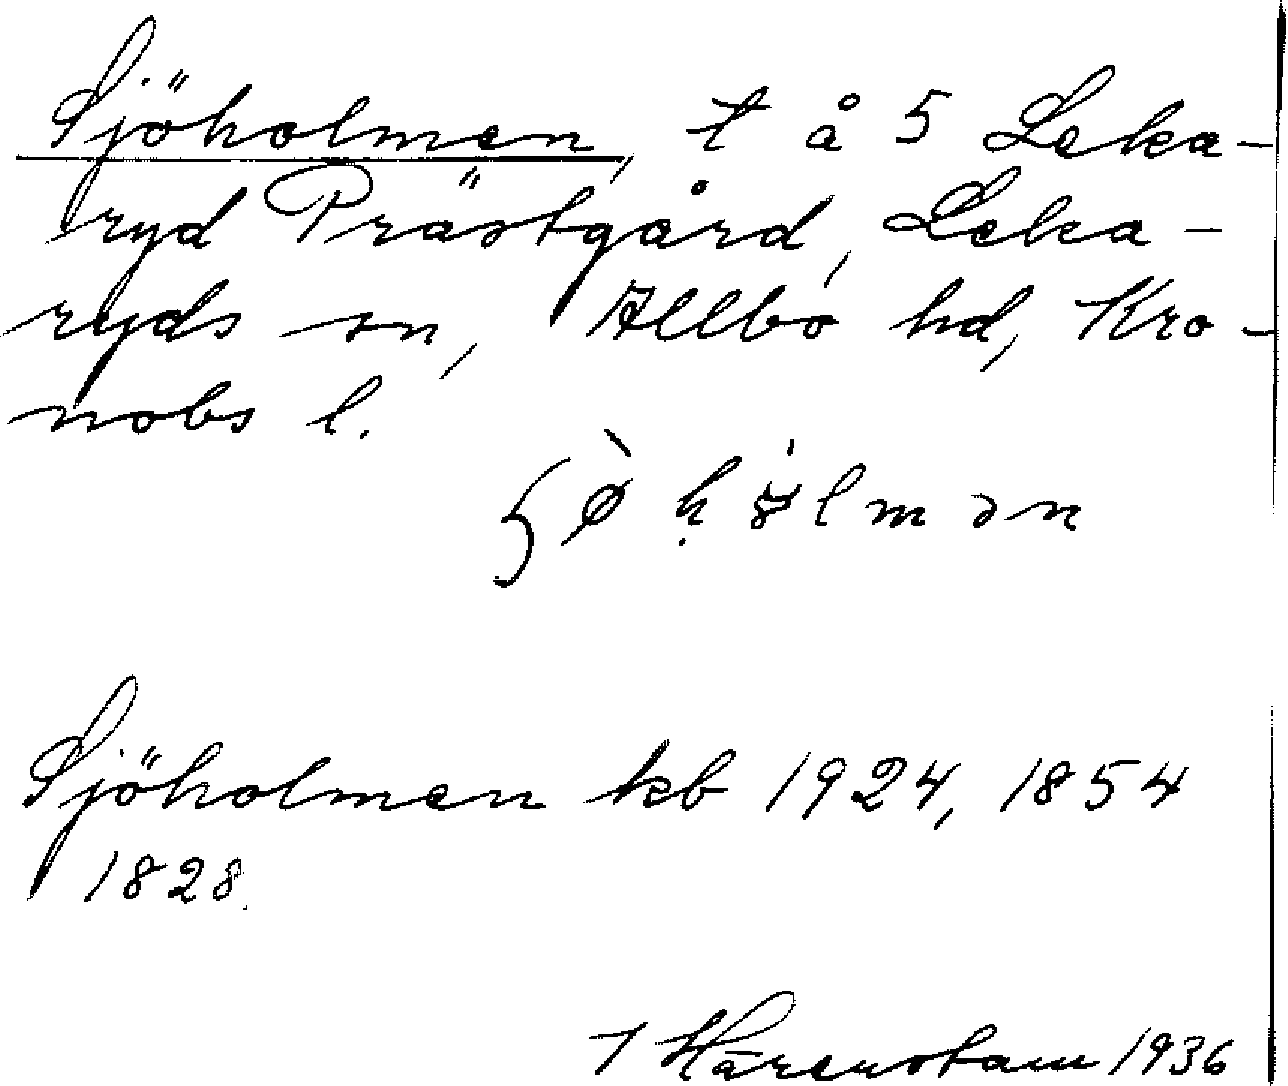 Sjöholmen, t å 5 Leka-
ryd Prästgård, Leka-
ryds sn, Allbo hd, Kro-
nobs l.
Sjöholmen kb 1924, 1854
1828.
T Härenstam 1936